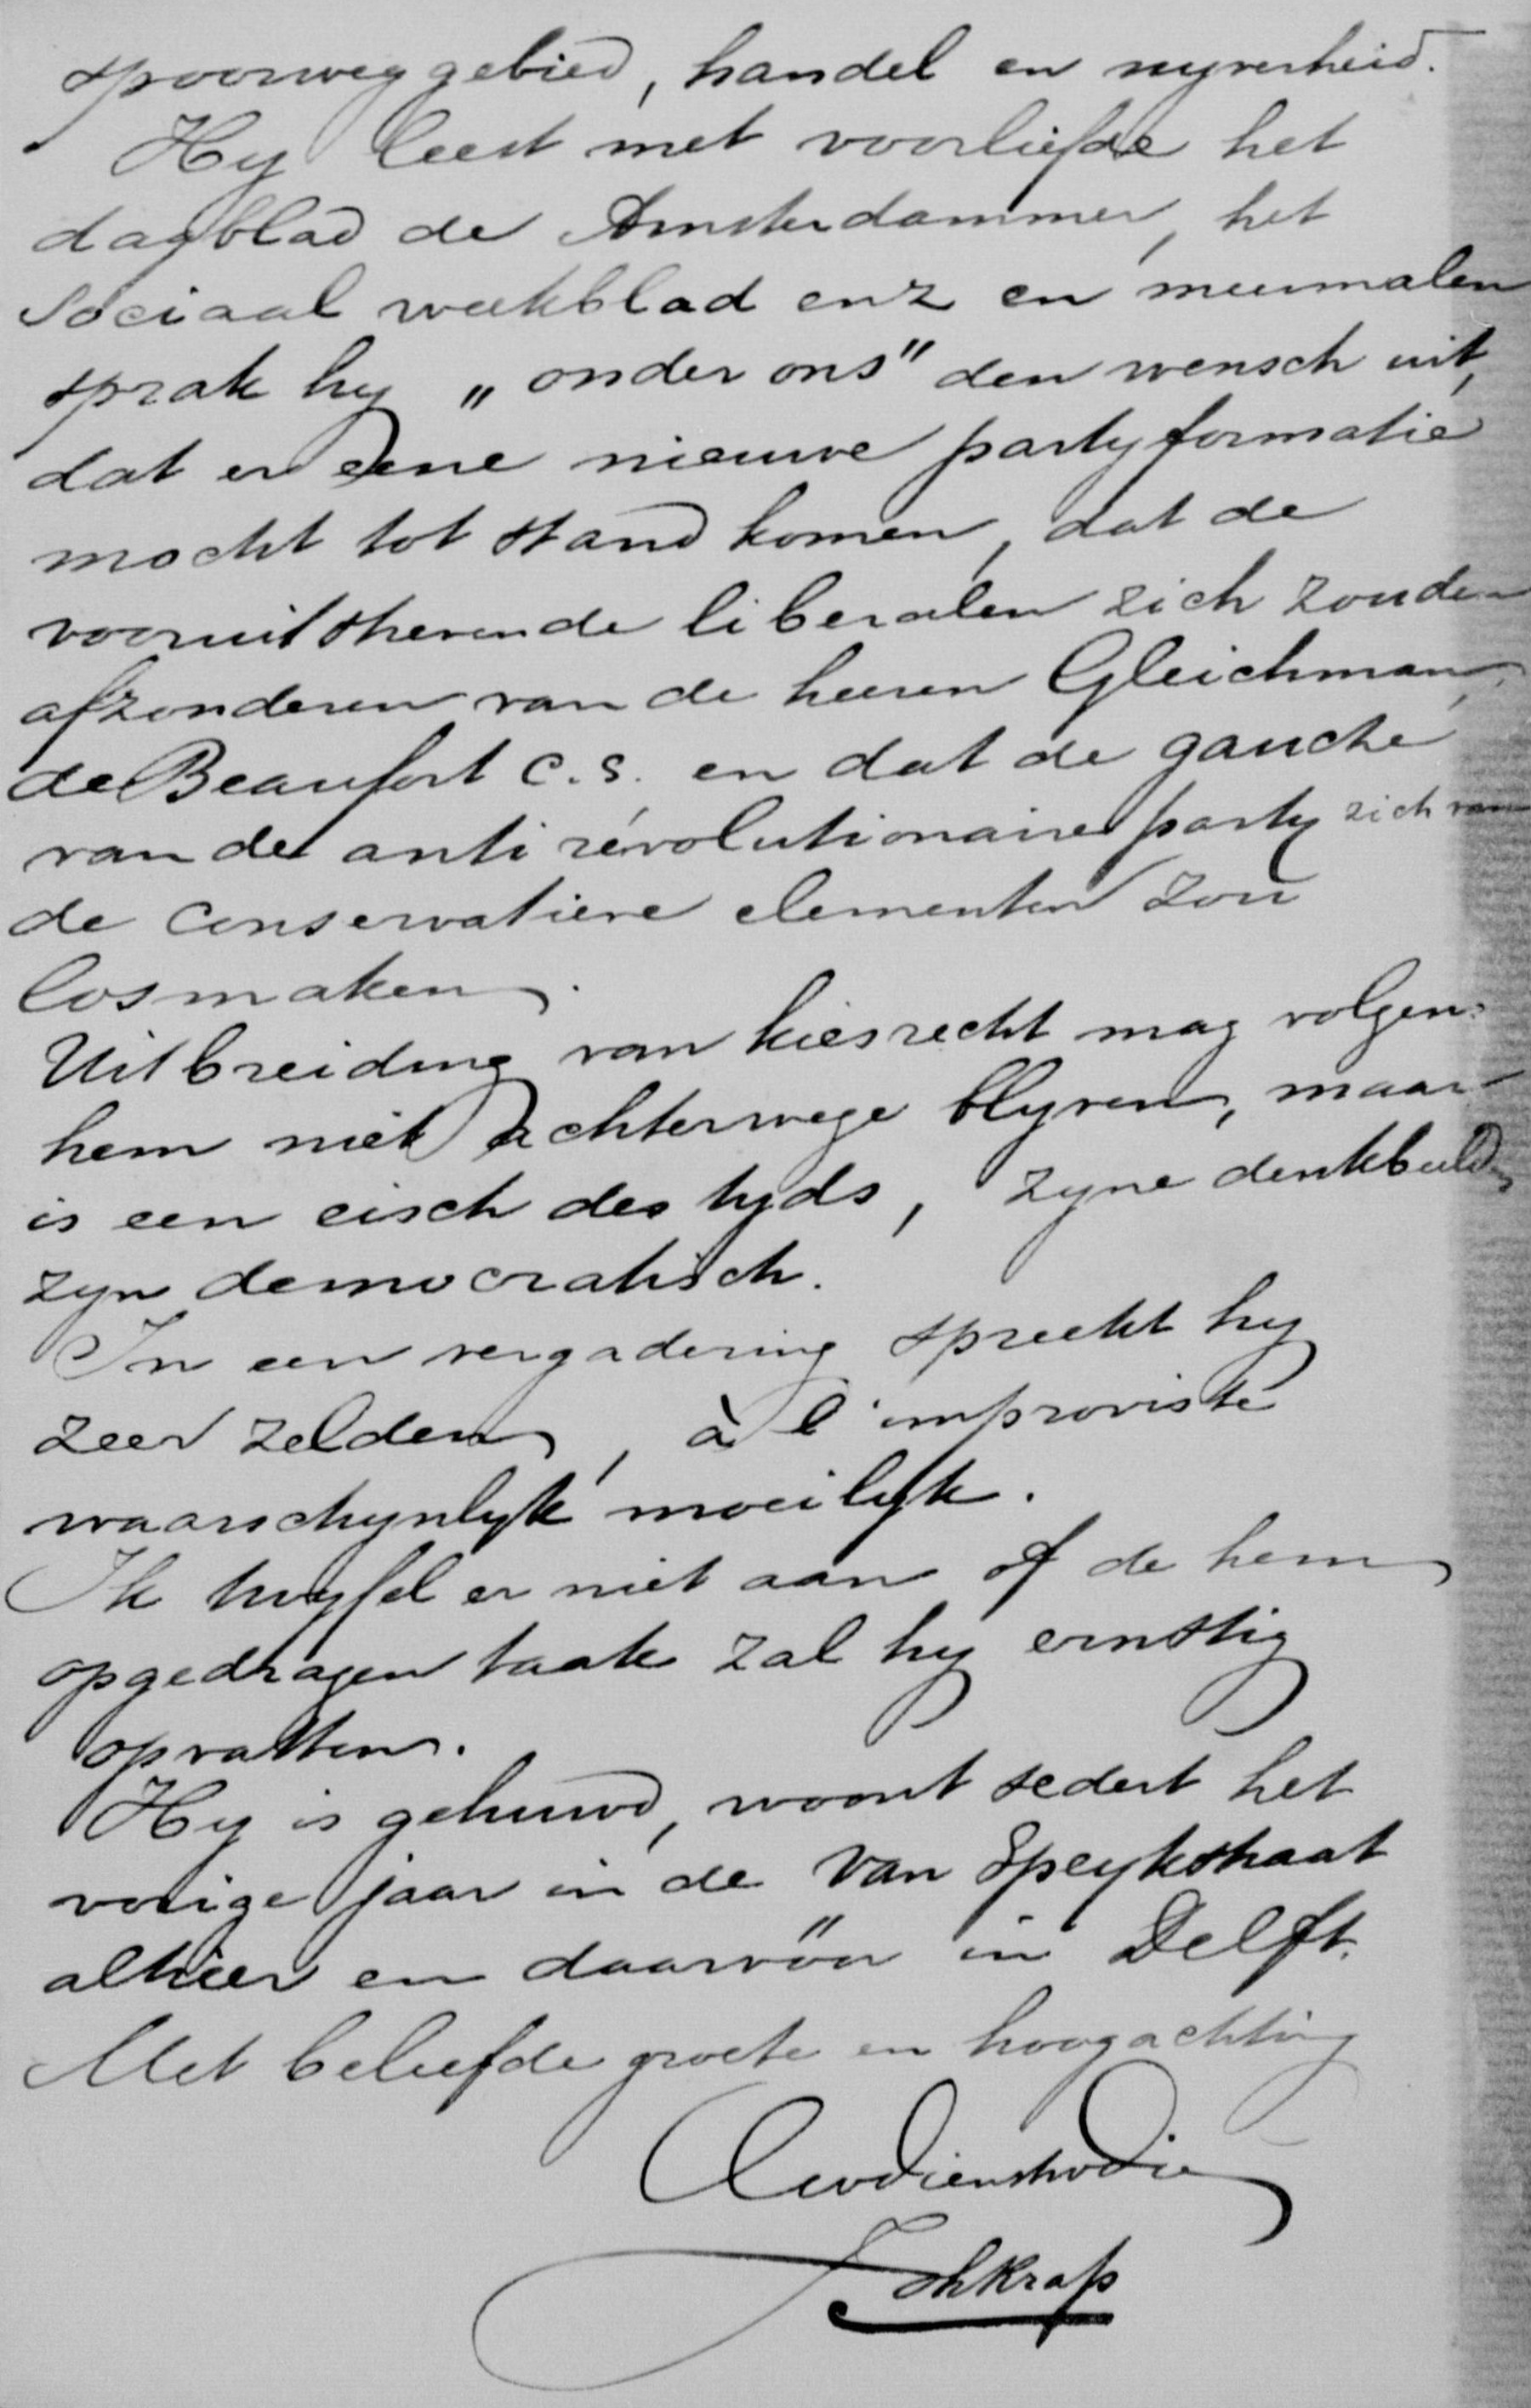 spoorweggebied, handel en nyverheid.
Hy leest met voorliefde het
dagblad de Amsterdammer, het
Sociaal weekblad enz en meermalen
sprak hy „onder ons" den wensch uit,
dat er eene nieuwe partyformatie
mocht tot stand komen, dat de
vooruitstrevende liberalen zich zouden
afzonderen van de heeren Gleichman,
de Beaufort c.s. en dat de gauche
van de anti révolutionaire party zich van
de conservatieve elementen zou
losmaken.
Uitbreiding van kiesrecht mag volgens
hem niet achterwege blyven, maar
is een eisch des tyds, zyne denkbeelden
zyn democratisch.
In een vergadering spreekt hy
zeer zelden, à l'improviste
waarschynlyk moeilyk.
Ik twyfel er niet aan of de hem
opgedragen taak zal hy ernstig
opvatten.
Hy is gehuwd, woont sedert het
vorige jaar in de van Speykstraat
alhier en daarvóór in Delft.
Met beleefde groete en hoogachting
Uwdienstwdie
JohKrap